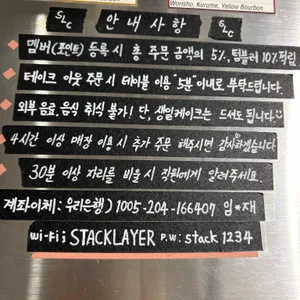 Worisho, Kurume, Yellow Bourbon
SLC 안내사항 SLC
멤버(포인트) 등록 시 총 주문 금액의 5%, 텀블러 10% 적립
테이크 아웃 주문 시 테이블 이용 "5분"이내로 부탁드립니다.
외부 음료, 음식 취식 불가! 단, 생일케이크는 드셔도 됩니다
4시간 이상 매장 이용 시 추가 주문 해주시면 감사하겠습니다
30분 이상 자리를 비울 시 직원에게 알려주세요.
계좌이체: 우리은행) 1005-204-166407 임*재
wi-fi: STACKLAYER P.W: stack1234